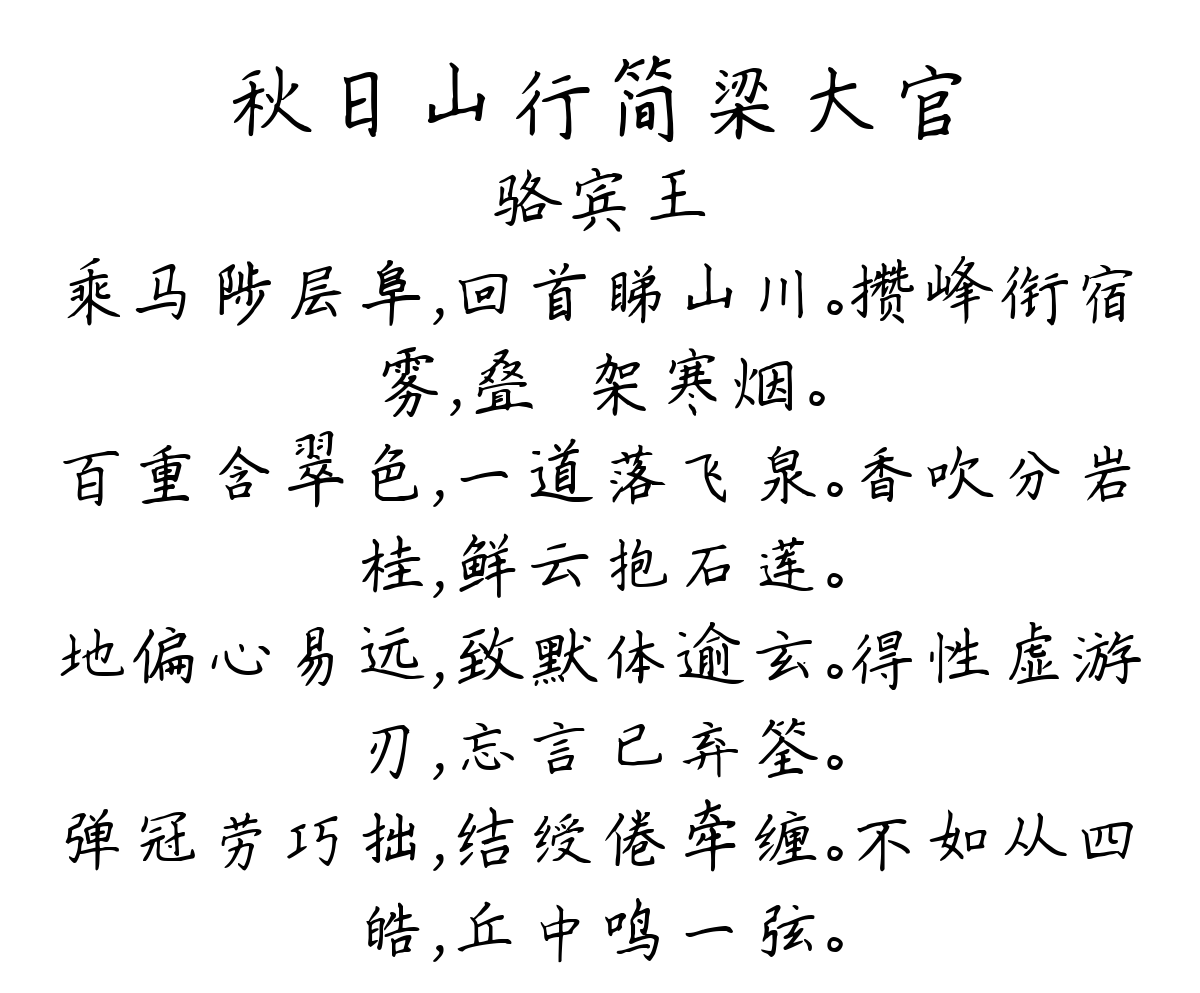 秋日山行简梁大官
骆宾王
乘马陟层阜,回首睇山川。攒峰衔宿
雾,叠 架寒烟。
百重含翠色,一道落飞泉。香吹分岩
桂,鲜云抱石莲。
地偏心易远,致默体逾玄。得性虚游
刃,忘言已弃筌。
弹冠劳巧拙,结绶倦牵缠。不如从四
皓,丘中鸣一弦。